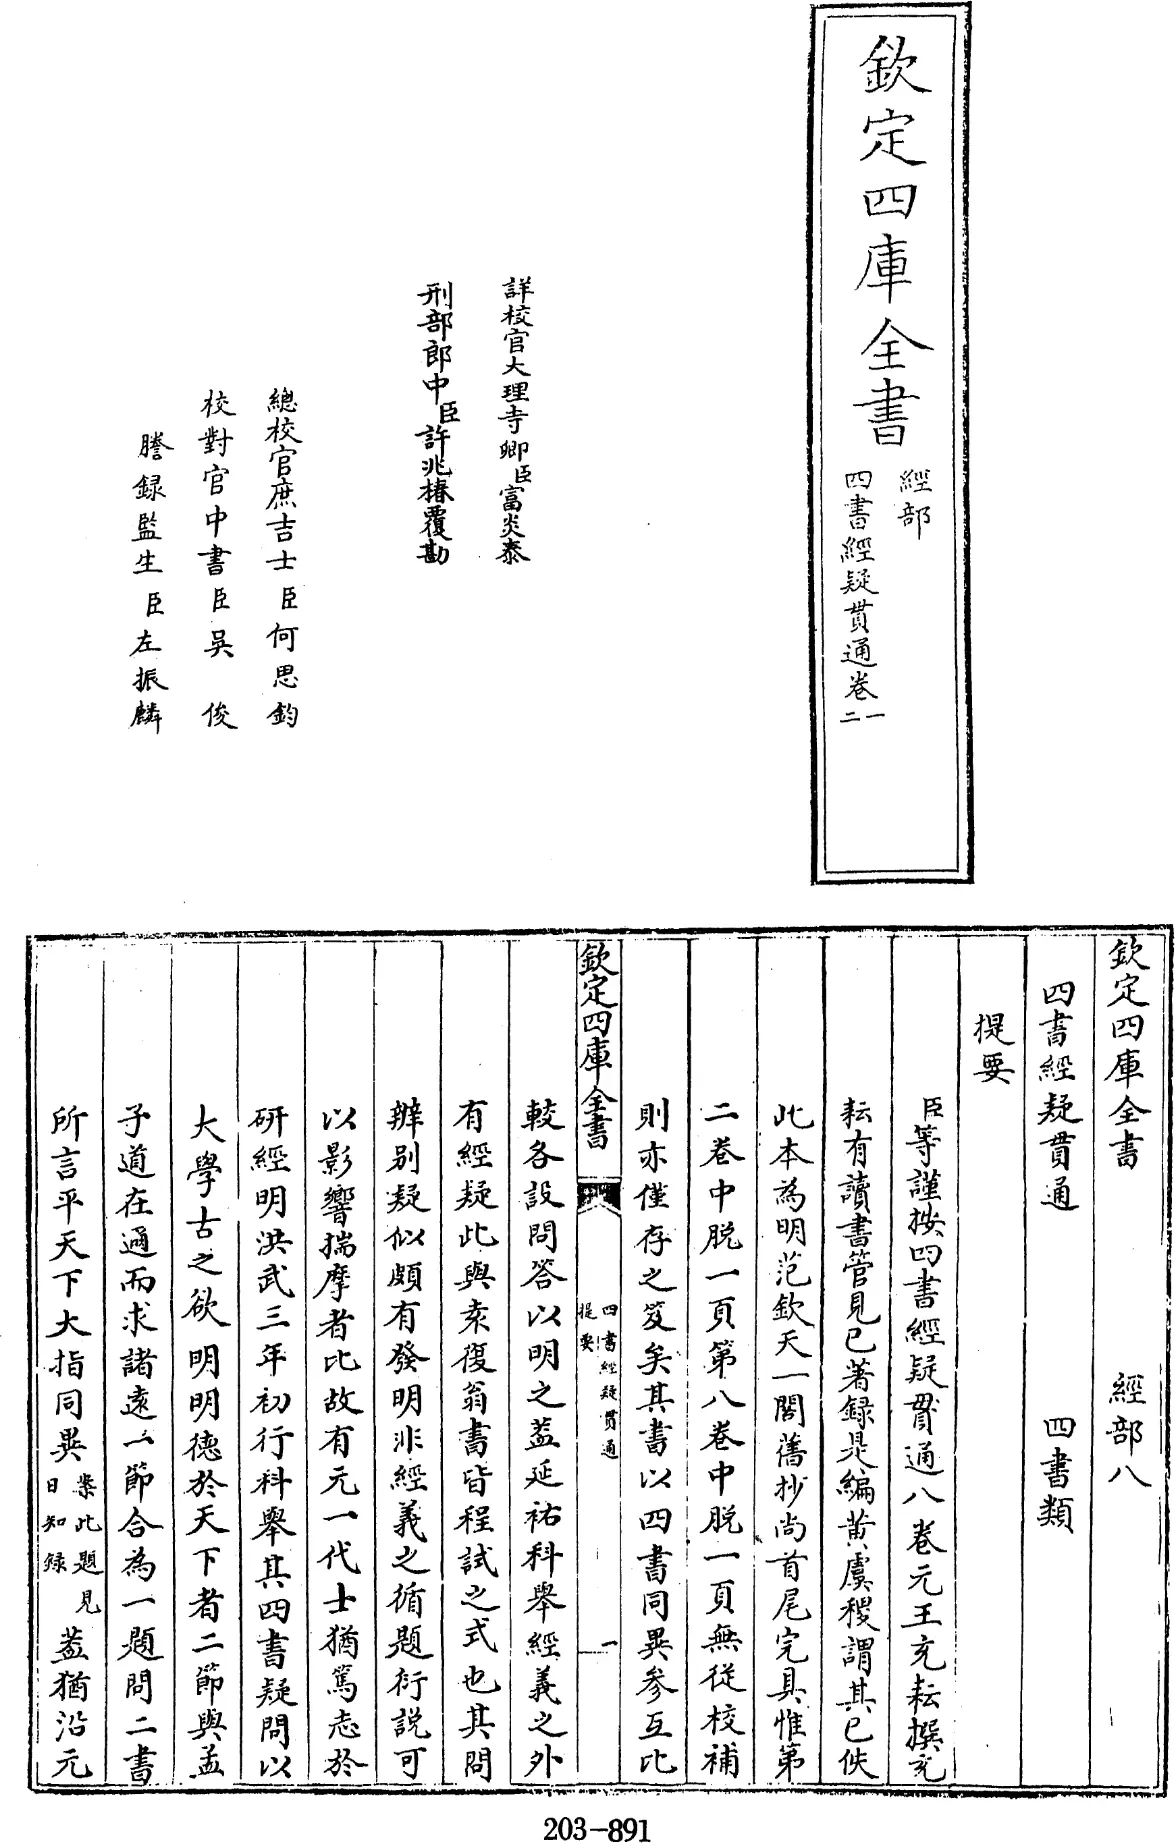 欽定四庫全書
經部
四書經疑貫通卷一
二
詳校官大理寺卿臣富炎泰
刑部郎中臣許兆椿覆勘
總校官庶吉士臣何思鈞
校對官中書臣吳俊
謄錄監生臣左振麟
欽定四庫全書 經部八
四書經疑貫通 四書類
提要
臣等謹按四書經疑貫通八卷元王充耘撰充
耘有讀書管見已著録是編黄虞稷謂其已佚
此本為明范欽天一閣舊抄尚首尾完具惟第
二卷中脱一頁第八卷中脱一頁無從校補
則亦僅存之笈矣其書以四書同異參互比
欽定四庫全書
四書經疑貫通
提要
一
較各設問答以明之蓋延祐科舉經義之外
有經疑此與袁復翁書皆程試之式也其問
辨别疑似頗有發明非經義之循題衍説可
以影響揣摩者比故有元一代士猶篤志於
研經明洪武三年初行科舉其四書疑問以
大學古之欲明明德於天下者二節與孟
子道在邇而求諸遠一節合為一題問二書
所言平天下大指同異案此題見日知録蓋猶沿元
203-891